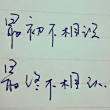 最初不相识
最终不相认